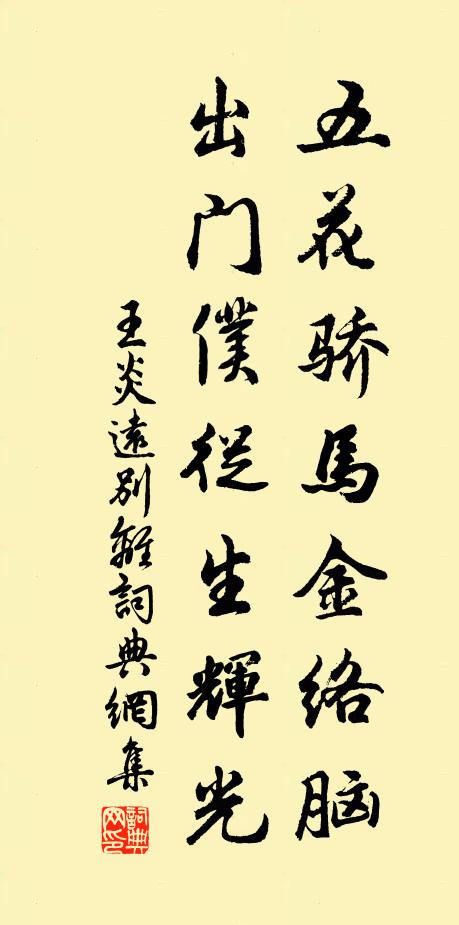 五花骄馬金络脑
出门僕從生輝光
王炎遠别離詞典網集
詞典
网印